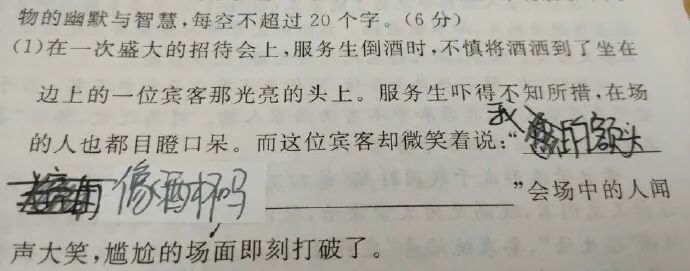 物的幽默与智慧,每空不超过 20 个字。(6 分)
(1)在一次盛大的招待会上,服务生倒酒时,不慎将酒洒到了坐在
边上的一位宾客那光亮的头上。服务生吓得不知所措,在场
的人也都目瞪口呆。而这位宾客却微笑着说:“我的额头
像酒杯吗”会场中的人闻
声大笑,尴尬的场面即刻打破了。